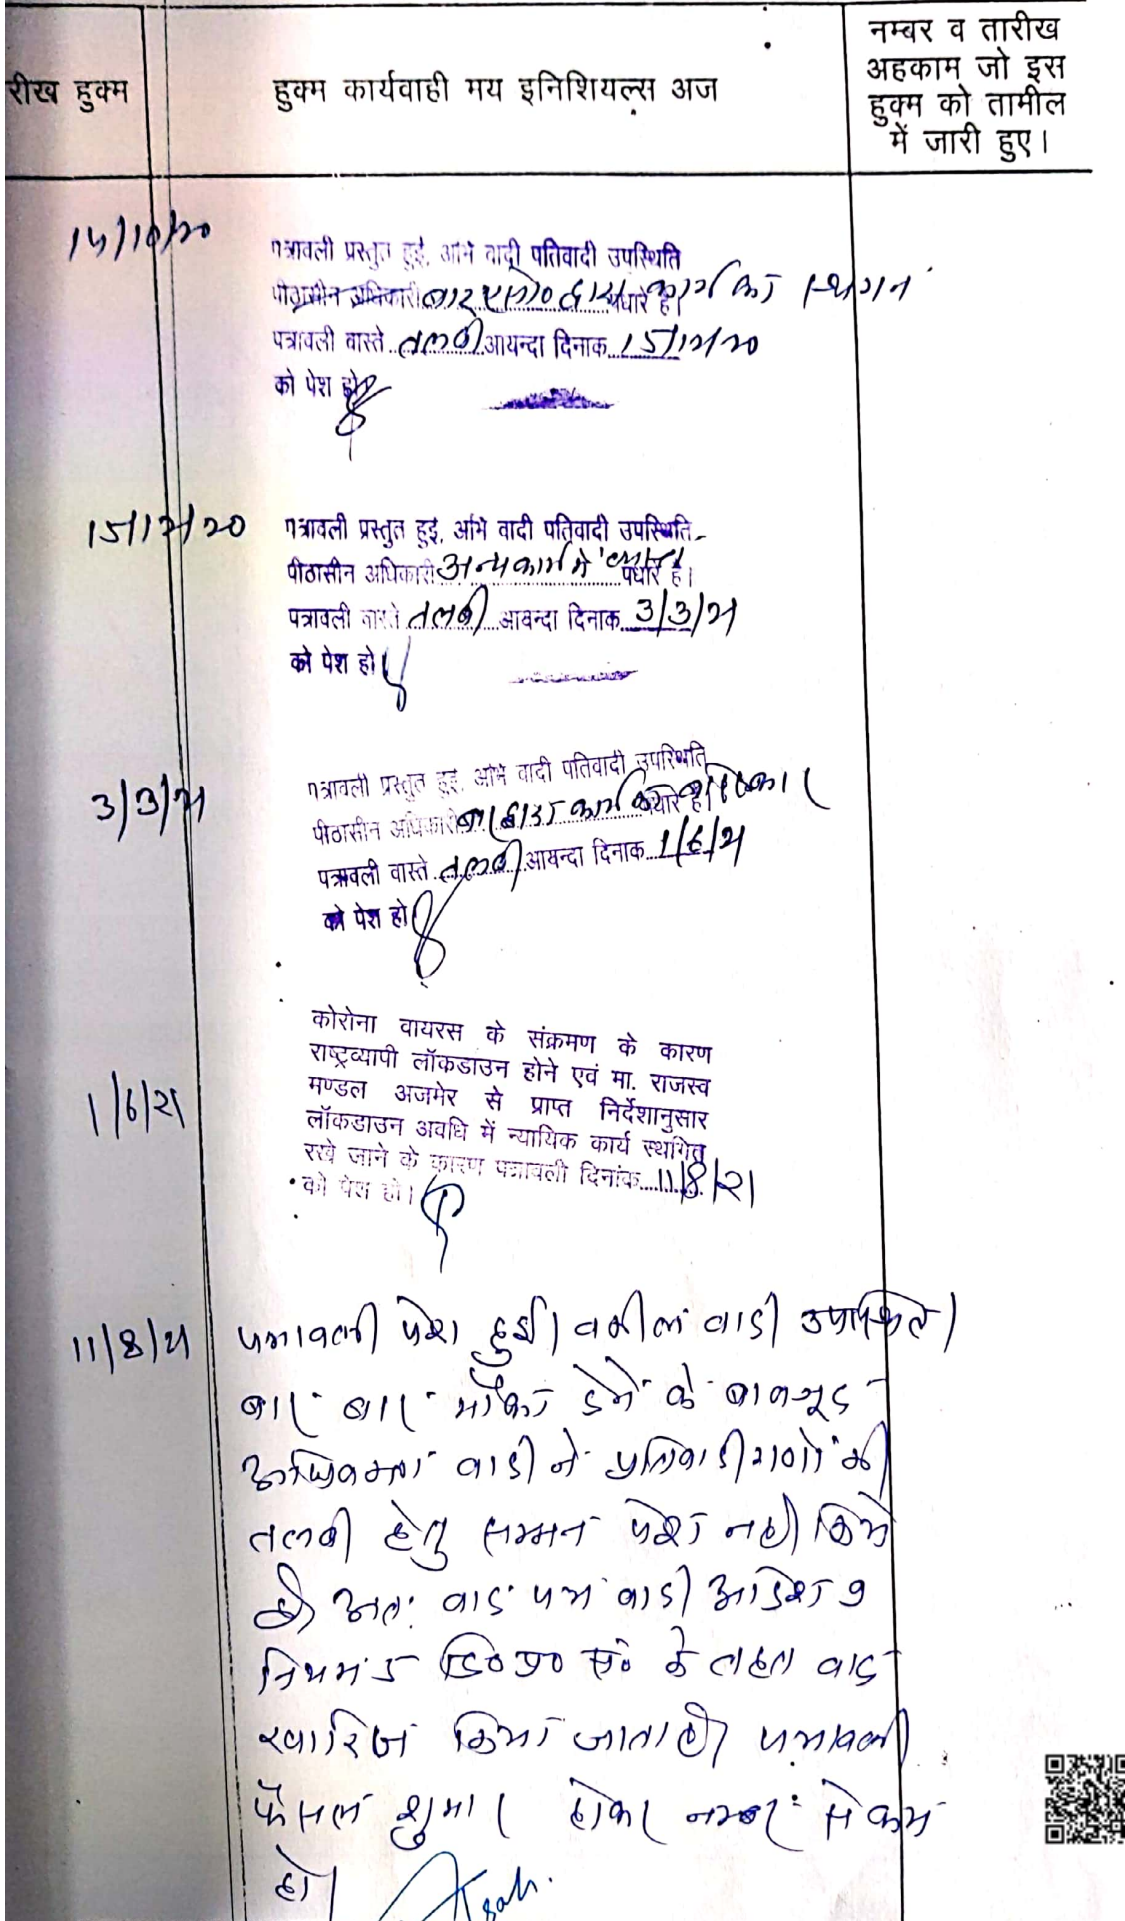 रीख हुक्म
हुक्म कार्यवाही मय इनिशियल्स अज
नम्बर व तारीख
अहकाम जो इस
हुक्म को तामील
में जारी हुए।
पत्रावली प्रस्तुत हुई, अभि वादी पतिवादी उपस्थिति
पीठासीन अधिकारी द्वारा कार्य का स्थगन पधारे है।
पत्रावली वास्ते तलबी आयन्दा दिनाक 15/12/20
को पेश हो
15/12/20
पत्रावली प्रस्तुत हुई, अभि वादी पतिवादी उपस्थिति
पीठासीन अधिकारी अन्य कार्य मे पधारे है।
पत्रावली वास्ते तलबी आयन्दा दिनाक 3/3/21
को पेश हो
3/3/21
पत्रावली प्रस्तुत हुई, अभि वादी पतिवादी उपस्थिति
पीठासीन अधिकारी कार्य पधारे है।
पत्रावली वास्ते तलबी आयन्दा दिनाक 1/6/21
को पेश हो
1/6/21
कोरोना वायरस के संक्रमण के कारण
राष्ट्रव्यापी लॉकडाउन होने एवं मा. राजस्व
मण्डल अजमेर से प्राप्त निर्देशानुसार
लॉकडाउन अवधि में न्यायिक कार्य स्थगित
रखे जाने के कारण पत्रावली दिनांक 11/8/21
को पेश हो।
11/8/21
पत्रावली पेश हुई। वकील वादी उपस्थित।
बार बार मौका देने के बावजूद
अधिवक्ता वादी ने प्रतिवादीगणों की
तलबी हेतु सम्मन पेश नही किये
है। अतः वाद पत्र वादी आदेश 9
नियम 5 सि0 प्र0 सं0 के तहत वाद
खारिज किया जाता है। पत्रावली
फैसल शुमार होकर नम्बर से कम
हो।